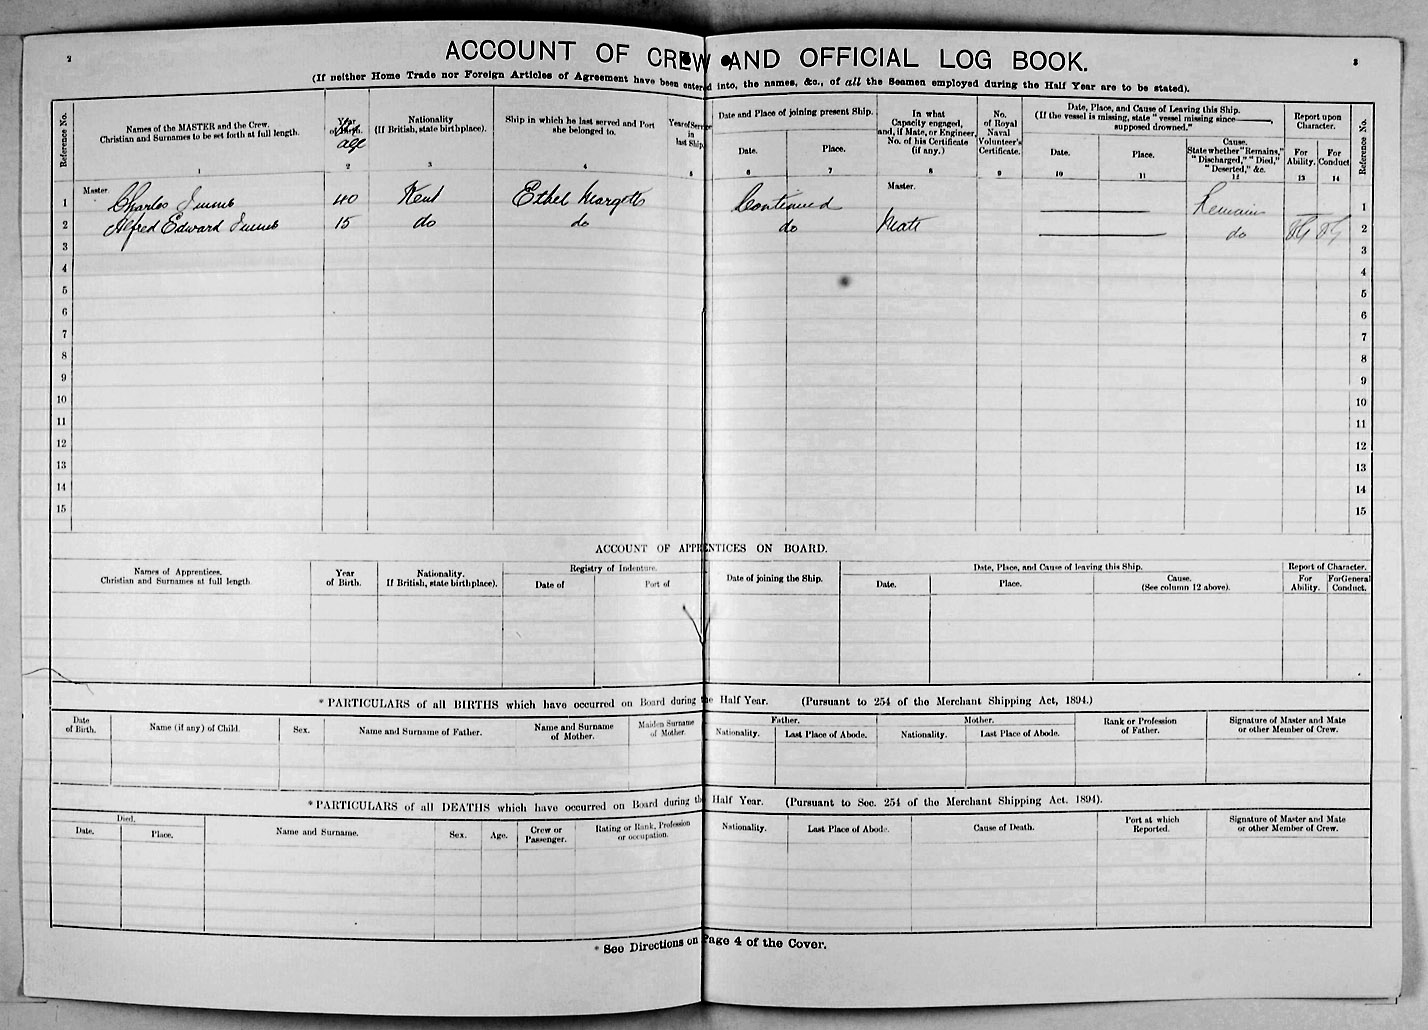 2
3
ACCOUNT OF CREW AND OFFICIAL LOG BOOK.
(If neither Home Trade nor Foreign Articles of Agreement have been entered into, the names, &c., of all the Seamen employed during the Half Year are to be stated).
Reference No.
Names of the MASTER and the Crew.
Christian and Surnames to be set forth at full length.
1
Year
of Birth.
age
2
Nationality
(If British, state birthplace).
3
Ship in which he last served and Port
she belonged to.
4
Year of Service
in
last Ship.
5
Date and Place of joining present Ship.
Date.
6
Place.
7
In what
Capacity engaged,
and, if Mate, or Engineer,
No. of his Certificate
(if any.)
8
No.
of Royal
Naval
Volunteer's
Certificate.
9
Date, Place, and Cause of Leaving this Ship.
(If the vessel is missing, state "vessel missing since ———,
supposed drowned."
Date.
10
Place.
11
Cause.
State whether "Remains,"
"Discharged," "Died,"
"Deserted," &c.
12
Report upon
Character.
For
Ability.
13
For
Conduct
14
Reference No.
Master.
Master.
1 Charles 40 Kent Ethel Margetts Continued Remains 1
2 Alfred Edward 15 do do do Mate do VG VG 2
3 3
4 4
5 5
6 6
7 7
8 8
9 9
10 10
11 11
12 12
13 13
14 14
15 15
ACCOUNT OF APPRENTICES ON BOARD.
Names of Apprentices.
Christian and Surnames at full length.
Year
of Birth.
Nationality.
If British, state birthplace).
Registry of Indenture.
Date of
Port of
Date of joining the Ship.
Date, Place, and Cause of leaving this Ship.
Date.
Place.
Cause.
(See column 12 above).
Report of Character.
For
Ability.
For General
Conduct.
* PARTICULARS of all BIRTHS which have occurred on Board during the Half Year. (Pursuant to 254 of the Merchant Shipping Act, 1894.)
Date
of Birth.
Name (if any) of Child.
Sex.
Name and Surname of Father.
Name and Surname
of Mother.
Maiden Surname
of Mother.
Father.
Nationality.
Last Place of Abode.
Mother.
Nationality.
Last Place of Abode.
Rank or Profession
of Father.
Signature of Master and Mate
or other Member of Crew.
* PARTICULARS of all DEATHS which have occurred on Board during the Half Year. (Pursuant to Sec. 254 of the Merchant Shipping Act. 1894).
Died.
Date.
Place.
Name and Surname.
Sex.
Age.
Crew or
Passenger.
Rating or Rank, Profession
or occupation.
Nationality.
Last Place of Abode.
Cause of Death.
Port at which
Reported.
Signature of Master and Mate
or other Member of Crew.
* See Directions on Page 4 of the Cover.